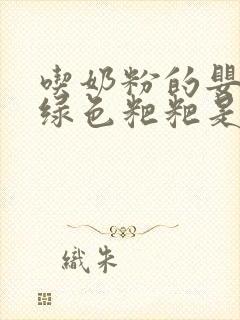 喫奶粉的嬰
綠色粑粑是
織朱